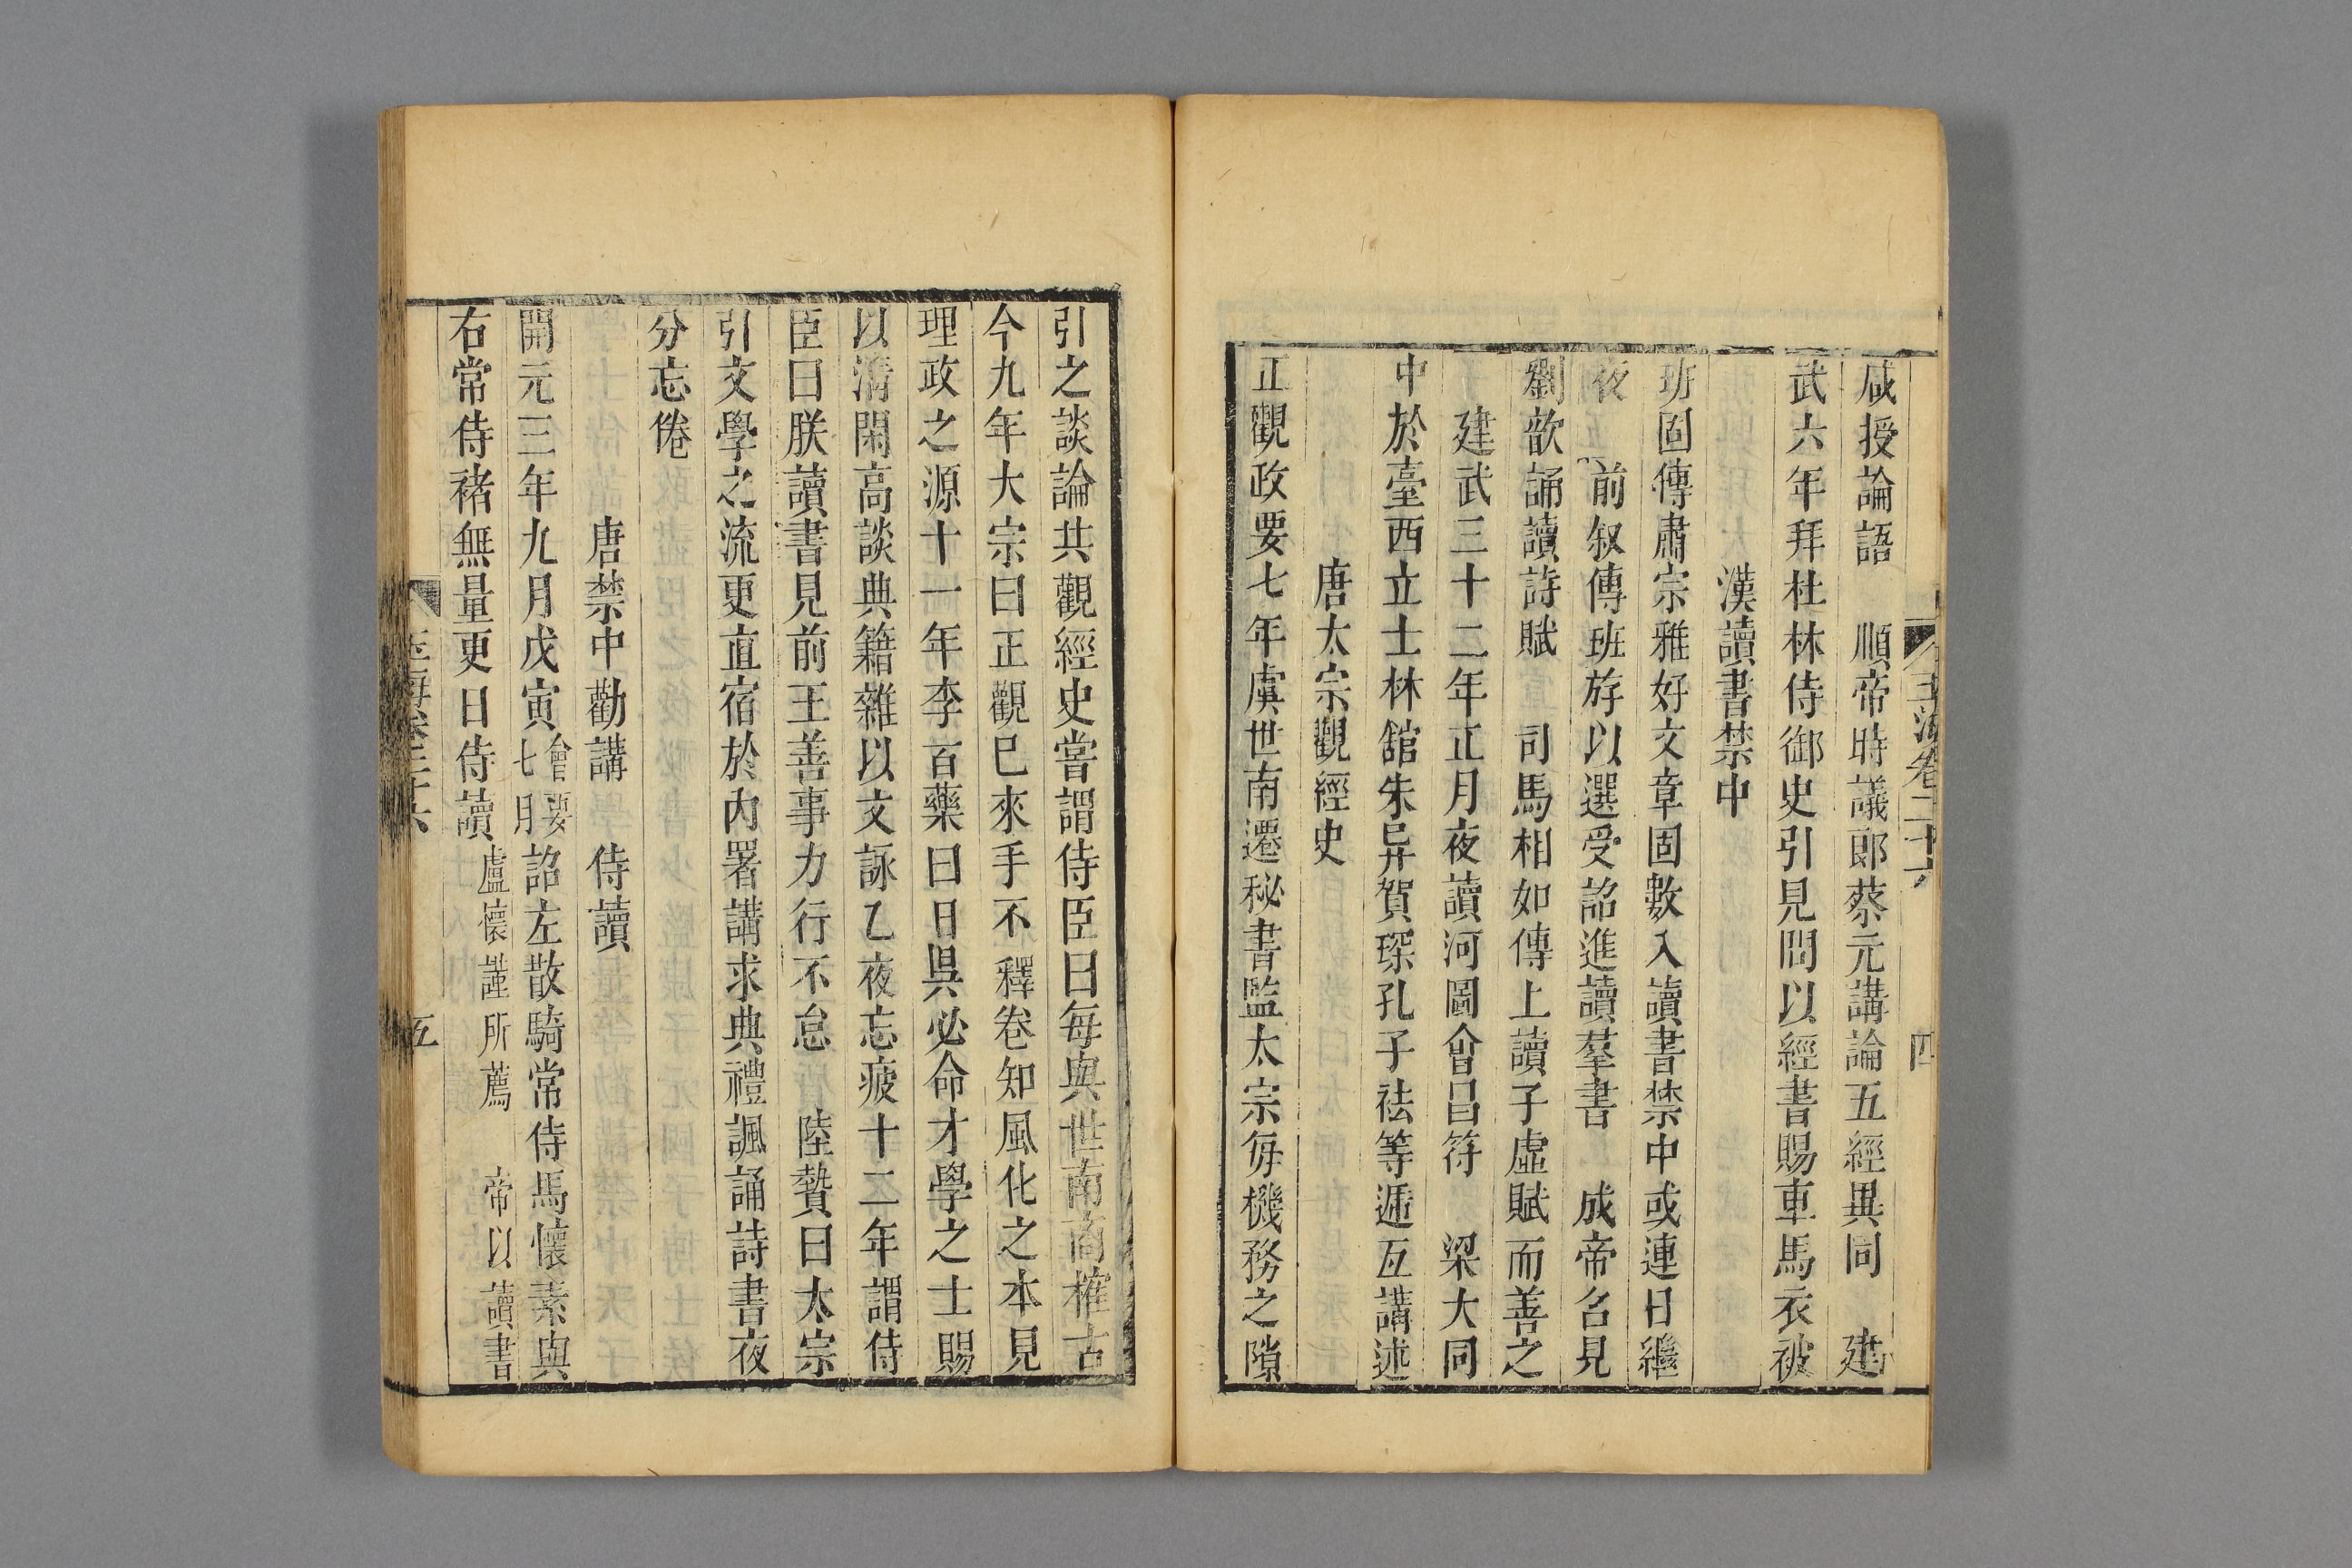 玉海卷二十六 四
咸授論語 順帝時議郎蔡元講論五經異同 建
武六年拜杜林侍御史引見問以經書賜車馬衣被
漢讀書禁中
班固傳肅宗雅好文章固數入讀書禁中或連日繼
夜 前叙傳班斿以選受詔進讀羣書 成帝召見
劉歆誦讀詩賦 司馬相如傳上讀子虛賦而善之
建武三十二年正月夜讀河圖會昌符 梁大同
中於臺西立士林舘朱异賀琛孔子袪等遞互講述
唐太宗觀經史
正觀政要七年虞世南遷秘書監太宗每機務之隙
引之談論共觀經史嘗謂侍臣曰每與世南商榷古
今九年大宗曰正觀已來手不釋卷知風化之本見
理政之源十一年李百藥曰日昃必命才學之士賜
以清閑高談典籍雜以文詠乙夜忘疲十二年謂侍
臣曰朕讀書見前王善事力行不怠 陸贄曰太宗
引文學之流更直宿於內署講求典禮諷誦詩書夜
分忘倦
唐禁中勸講 侍讀
開元三年九月戊寅會要七月詔左散騎常侍馬懷素與
右常侍褚無量更日侍讀盧懷謹所薦 帝以讀書
玉海卷二十六 五